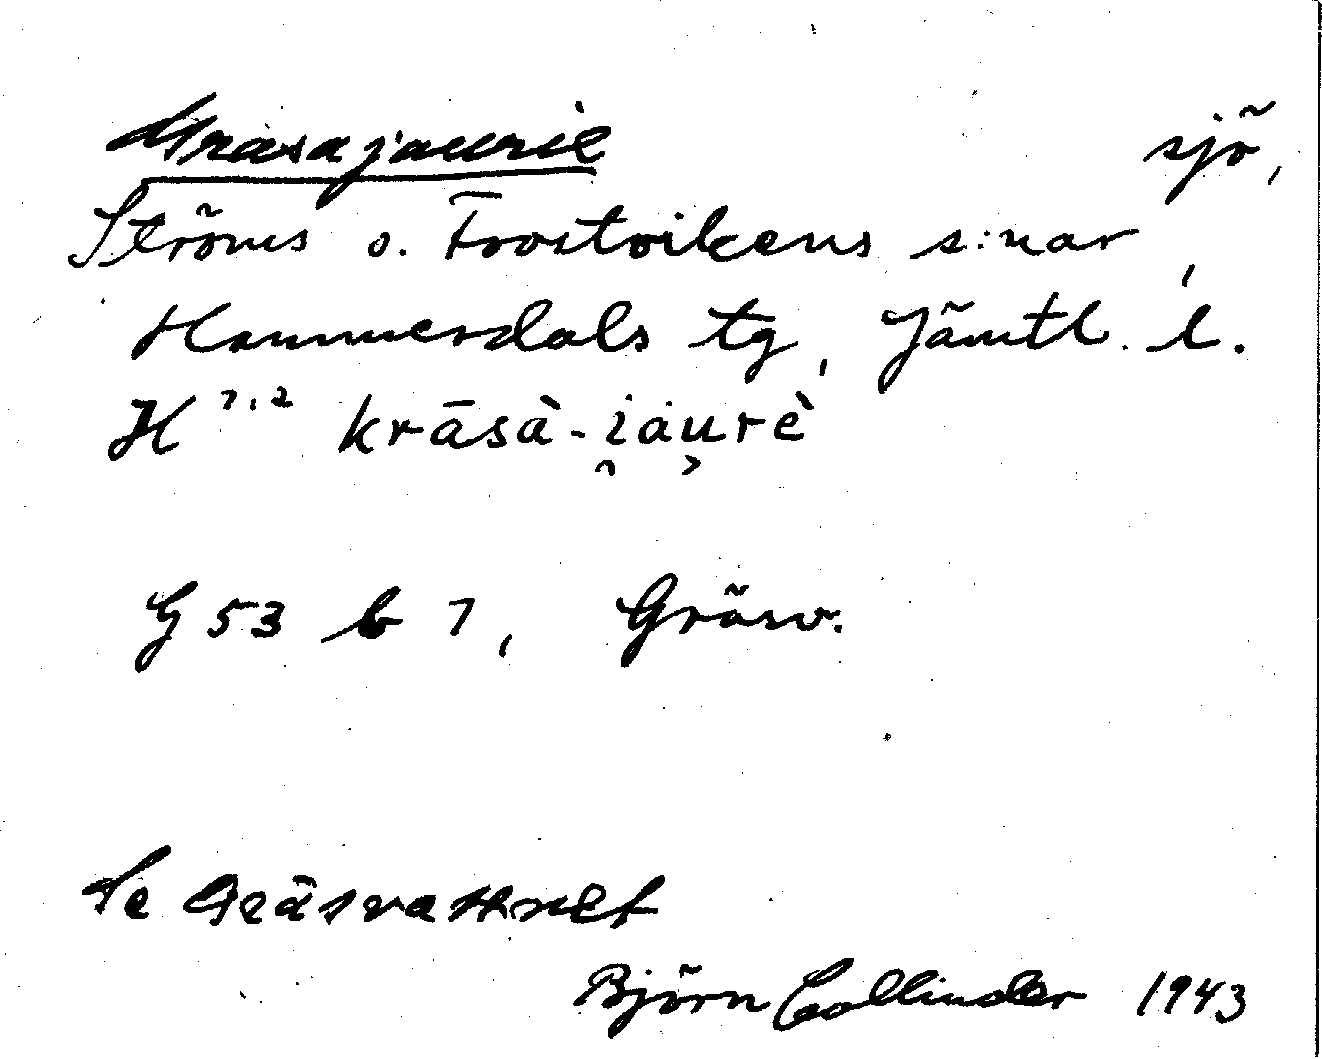 Kråsåjaurie sjö,
Ströms o. Frostvikens s:nar,
Hammerdals tg, Jämtl. l.
H 7.2 krāsà-i̯au̯rè
G 53 b 7, Gräsv.
Se Gräsvattnet
Björn Collinder 1943